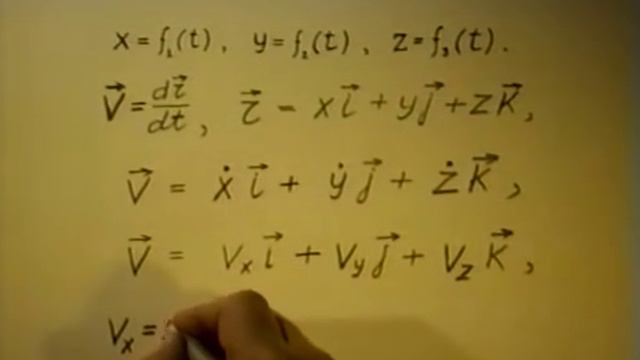 x = f₁(t), y = f₂(t), z = f₃(t).
V⃗ = dr⃗/dt, r⃗ = xi⃗ + yj⃗ + zk⃗,
V⃗ = ẋi⃗ + ẏj⃗ + żk⃗,
V⃗ = Vₓi⃗ + Vᵧj⃗ + V_zk⃗,
Vₓ =